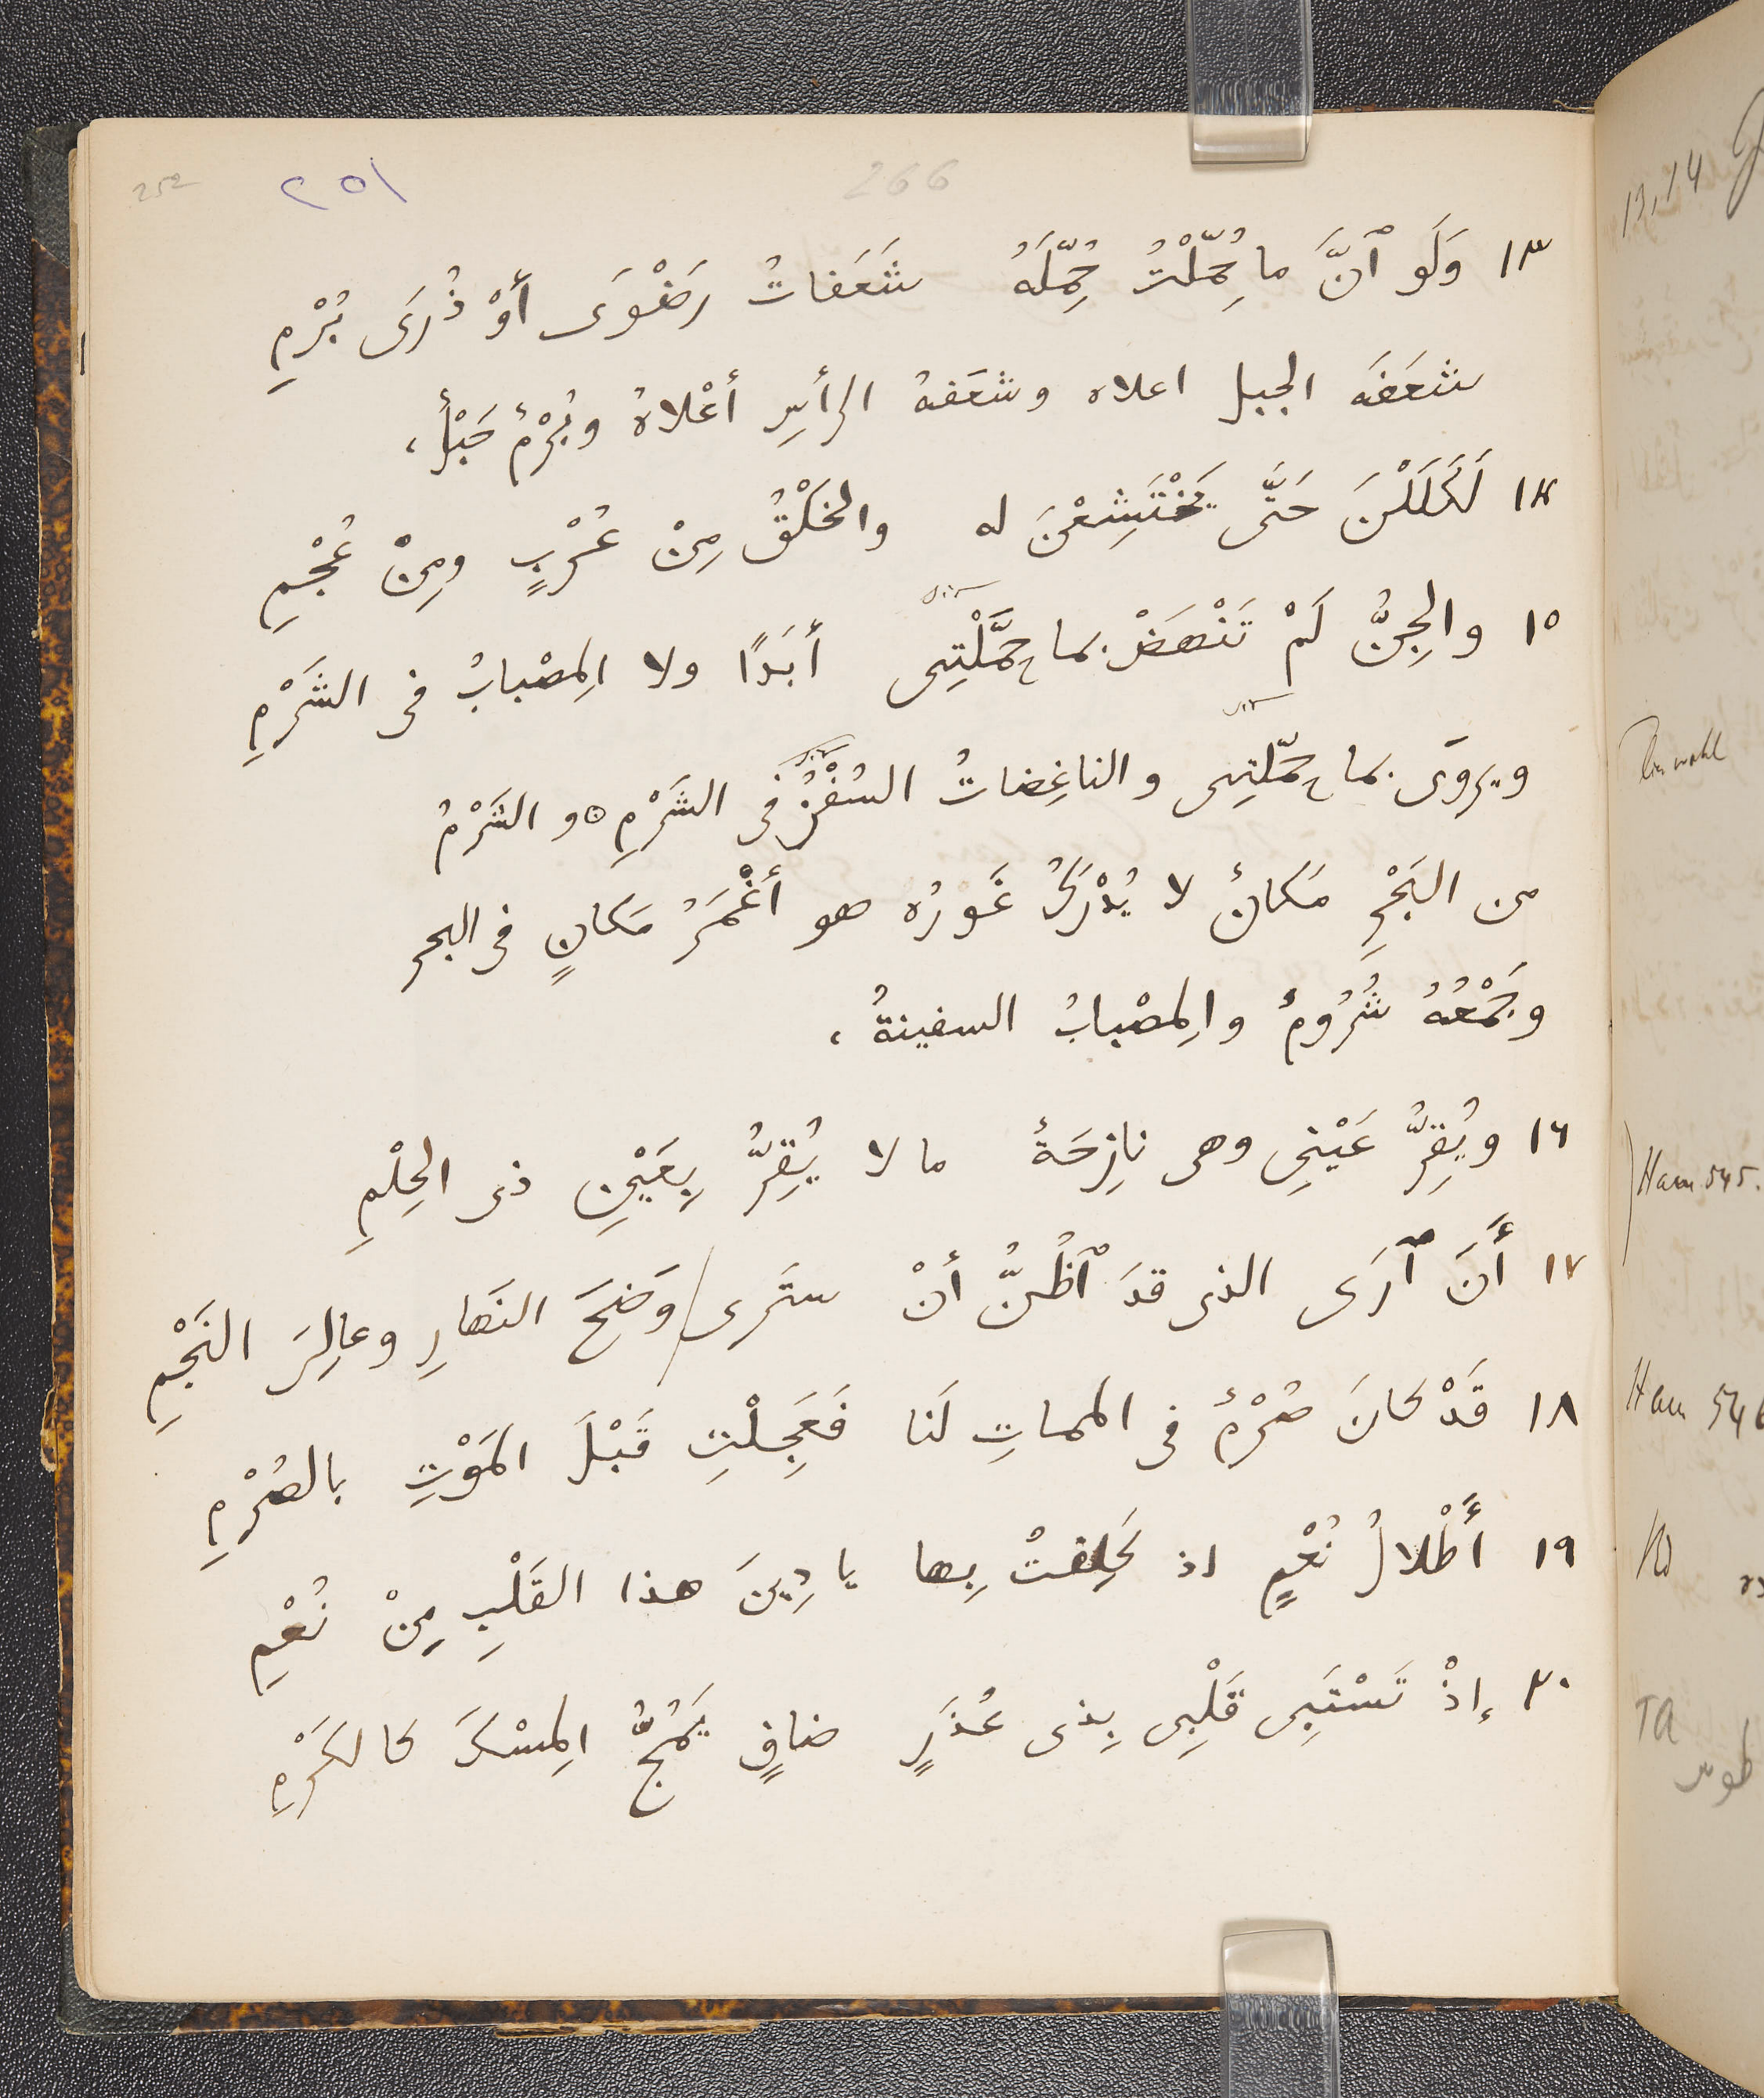 252
٢٥١
266
١٣ وَلَو ٱنَّ ما حُمِّلْتُ حُمِّلَهُ شَعَفاتُ رَضْوَى أوْ ذُرَى بُرْمِ
شعَفَه الجبل اعلاه وشعَفهُ الرأسِ أعْلاهُ وبُرْمٌ جَبَلٌ،
١٤ لَكَلَلْنَ حَتَّى يَخْتَشِعْنَ له والخَلْقُ مِنْ عُرْبٍ ومِنْ عُجْمِ
١٥ والجِنُّ لَمْ تَنْهَضْ بما حَمَّلْتِنِى أبَدًا ولا المِصْبابُ فى الشَرْمِ
ويروَى بما حمّلتنِى والناغِضاتُ السُفْنُ فى الشَرْمِ ٥ والشَرْمُ
من البَحْرِ مَكانٌ لا يُدْرَكُ غَورُه هو أغْمَرُ مَكانٍ فى البحر
وجَمْعُهُ شُرُومٌ والمِصْبابُ السفينةُ،
١٦ ويُقِرُّ عَيْنِى وهى نازِحَةٌ ما لا يُقِرُّ بِعَيْنِ ذى الحِلْمِ
١٧ أَنَ ٱرَى الذى قدَ ٱظُنُّ أنْ ستَرى / وَضِحَ النَهارِ وعالِىَ النَجْمِ
١٨ قَدْ كانَ صُرْمٌ فى المماتِ لَنا فَعَجِلْتِ قَبْلَ المَوْتِ بالصُرْمِ
١٩ أَطْلالُ نُعْمٍ اذ كَلِفتْ بِها يا دِينَ هذا القَلْبِ مِنْ نُعْمِ
٢٠ إذْ تَسْتَبِى قَلْبِى بِذى عُذَرٍ ضافٍ يَمُجُّ المِسْكَ كالكَرْمِ
13,14
Ham 545.
Ham 546
TA